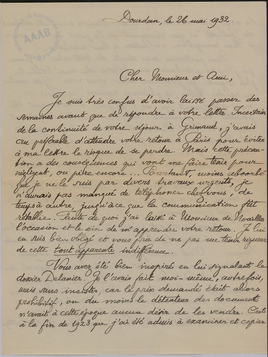 Dourdan, le 26 mai 1932
Cher Monsieur et Ami,
Je suis très confus d'avoir laissé passer des
semaines avant que de répondre à votre lettre. Incertain
de la continuité de votre séjour à Grimaud, j'avais
cru préférable d'attendre votre retour à Paris pour éviter
à ma lettre le risque de se perdre. Mais cette précau-
tion a des conséquences qui vont me faire tenir pour
négligent, ou pire encore... Pourtant, moins absorbé
que je ne le suis par divers travaux urgents, je
n'aurais pas manqué de téléphoner chez vous, de
temps à autre, jusqu'à ce que la communication fût
rétablie. Faute de quoi j'ai laissé à Monsieur de
l'occasion et le soin de m'apprendre votre retour. Je lui
en suis bien obligé et vous prie de ne pas me tenir rigueur
de cette tout apparente indifférence.
Vous avez été bien inspiré en lui signalant le
dossier. Je l'avais fait moi-même, autrefois,
mais sans insister, car le prix demandé était alors
prohibitif, ou du moins le détenteur des documents
n'avait à cette époque aucun désir de les vendre. C'est
à la fin de 1923 que j'ai été admis à examiner et copier